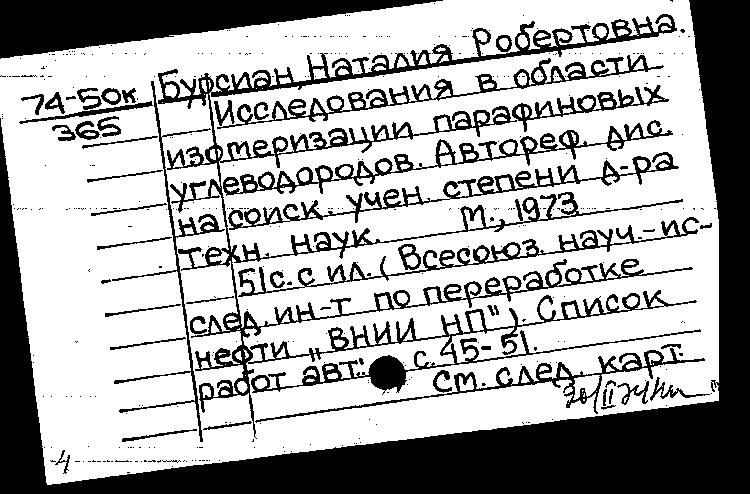 Бурсиан, Наталия Робертовна.
74-50к
365
Исследования в области
изомеризации парафиновых
углеводородов. Автореф. дис.
на соиск. учен. степени д-ра
техн. наук. М., 1973
51с. с ил. (Всесоюз. науч.-ис-
след. ин-т по переработке
нефти „ВНИИ НП"). Список
работ авт.: с. 45-51.
См. след. карт.
4